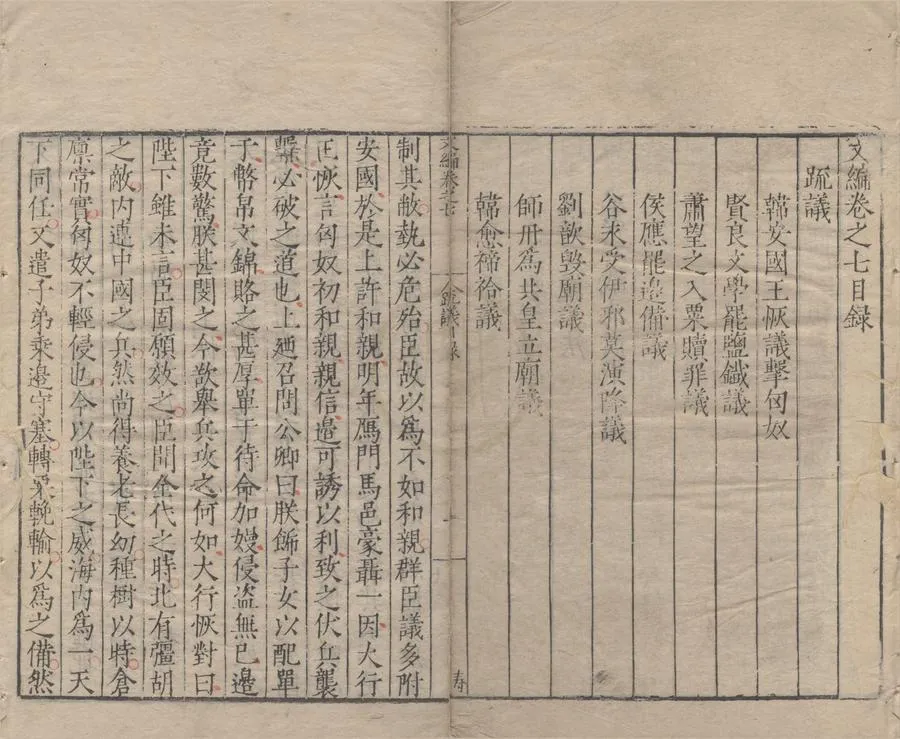 文編卷之七目録
疏議
韓安國王恢議擊匈奴
賢良文學罷鹽鐵議
蕭望之入粟贖罪議
侯應罷邊備議
谷永受伊邪莫演降議
劉歆毀廟議
師丹爲共皇立廟議
韓愈禘祫議
文編卷之七
疏議目録
寿
制其敝勢必危殆臣故以爲不如和親群臣議多附
安國於是上許和親明年鴈門馬邑豪聶一因大行
王恢言匈奴初和親親信邊可誘以利致之伏兵襲
擊必破之道也上廼召問公卿曰朕飾子女以配單
于幣帛文錦賂之甚厚單于待命加嫚侵盗無已邊
竟數驚朕甚閔之今欲舉兵攻之何如大行恢對曰
陛下雖未言臣固願效之臣聞全代之時北有彊胡
之敵内連中國之兵然尚得養老長幼種樹以時倉
廪常實匈奴不輕侵也今以陛下之威海内爲一天
下同任又遣子弟乘邊守塞轉粟輓輸以爲之備然